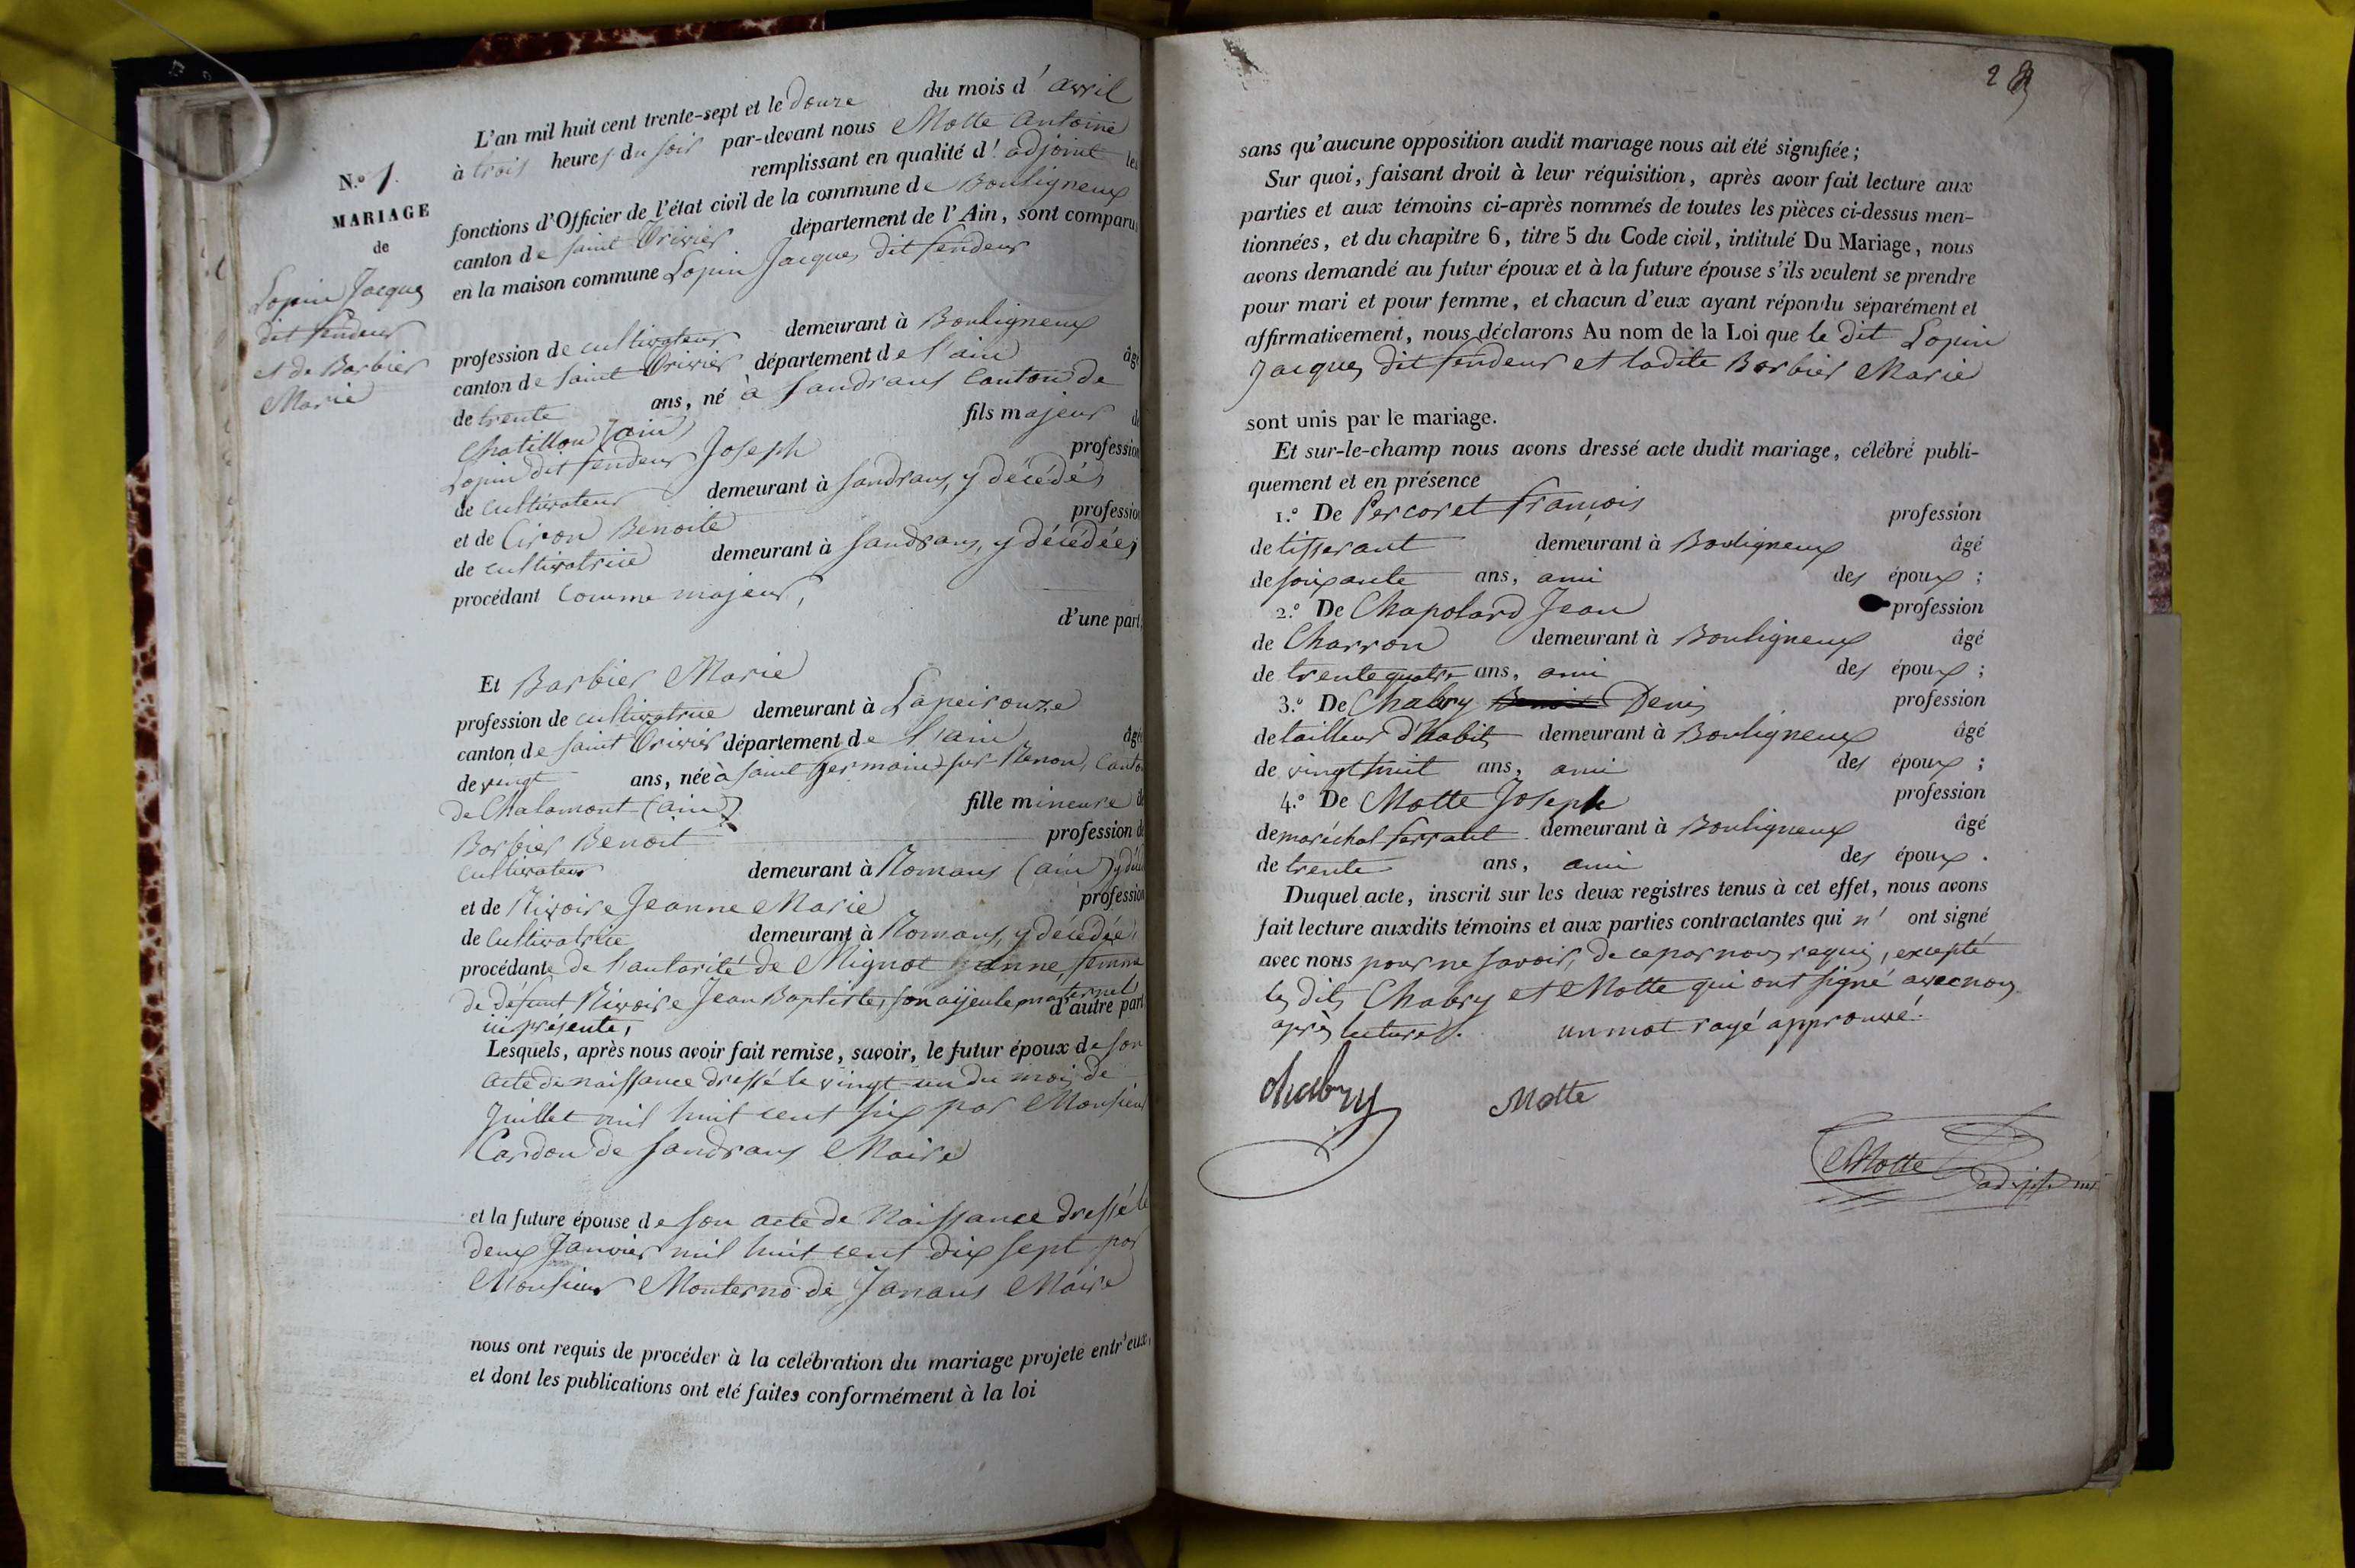 N.º 1.
MARIAGE
de
Lopin Jacques
dit fendeur
et de Barbier
Marie
L'an mil huit cent trente-sept et le douze du mois d'avril
à trois heures du soir par-devant nous Motte Antoine
remplissant en qualité d'adjoint les
fonctions d'Officier de l'état civil de la commune de Bouligneux
canton de saint Trivier département de l'Ain, sont comparus
en la maison commune Lopin Jacques dit fendeur
profession de cultivateur demeurant à Bouligneux
canton de saint Trivier département de l'ain âgé
de trente ans, né à Sandrans canton de
Chatillon (ain) fils majeur de
Lopin dit fendeur Joseph profession
de cultivateur demeurant à Sandrans, y décédé,
et de Ciron Benoite profession
de cultivatrice demeurant à Sandrans, y décédée;
procédant comme majeur,
d'une part,
Et Barbier Marie
profession de cultivatrice demeurant à Lapeirouze
canton de saint Trivier département de l'ain âgée
de vingt ans, née à saint Germain sur Renon, canton
de Chalamont (ain) fille mineure de
Barbier Benoit profession de
cultivateur demeurant à Romans (ain) y
et de Rivoire Jeanne Marie profession
de cultivatrice demeurant à Romans, y décédée,
procédante de l'autorité de Mignot Jeanne, femme
de défunt Rivoire Jean Baptiste, son aijeule maternel
ici présente, d'autre part
Lesquels, après nous avoir fait remise, savoir, le futur époux de son
acte de naissance dressé le vingt-un du mois de
Juillet mil huit cent six par Monsieur
Cardon de Sandrans Maire
et la future épouse de son acte de Naissance dressé le
deux Janvier mil huit cent dix sept par
Monsieur Monterno de Janans Maire
nous ont requis de procéder à la célébration du mariage projeté entr'eux,
et dont les publications ont été faites conformément à la loi
2
sans qu'aucune opposition audit mariage nous ait été signifiée;
Sur quoi, faisant droit à leur réquisition, après avoir fait lecture aux
parties et aux témoins ci-après nommés de toutes les pièces ci-dessus men-
tionnées, et du chapitre 6, titre 5 du Code civil, intitulé Du Mariage, nous
avons demandé au futur époux et à la future épouse s'ils veulent se prendre
pour mari et pour femme, et chacun d'eux ayant répondu séparément et
affirmativement, nous déclarons Au nom de la Loi que le dit Lopin
Jacques dit fendeur et ladite Barbier Marie
sont unis par le mariage.
Et sur-le-champ nous avons dressé acte dudit mariage, célébré publi-
quement et en présence
1.º De Percoret françois profession
de tisserant demeurant à Bouligneux âgé
de soixante ans, ami des époux;
2.º De Chapolard Jean profession
de Charron demeurant à Bouligneux âgé
de trente quatre ans, ami des époux;
3.º De Chabry Benoit Denis profession
de tailleur d'habits demeurant à Bouligneux âgé
de vingt huit ans, ami des époux;
4.º De Motte Joseph profession
de maréchal ferrant demeurant à Bouligneux âgé
de trente ans, ami des époux.
Duquel acte, inscrit sur les deux registres tenus à cet effet, nous avons
fait lecture auxdits témoins et aux parties contractantes qui n'ont signé
avec nous pour ne savoir, de ce par nous requis, excepté
les dits Chabry et Motte qui ont signé avec nous
après lecture. un mot rayé approuvé.
Chabry
Motte
Motte